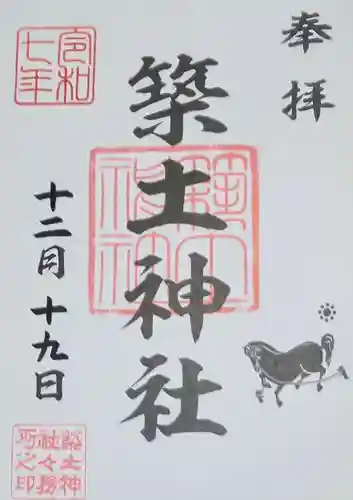 奉拝
築土神社
令和
七年
十二月十九日
築土神
社々務
所之印